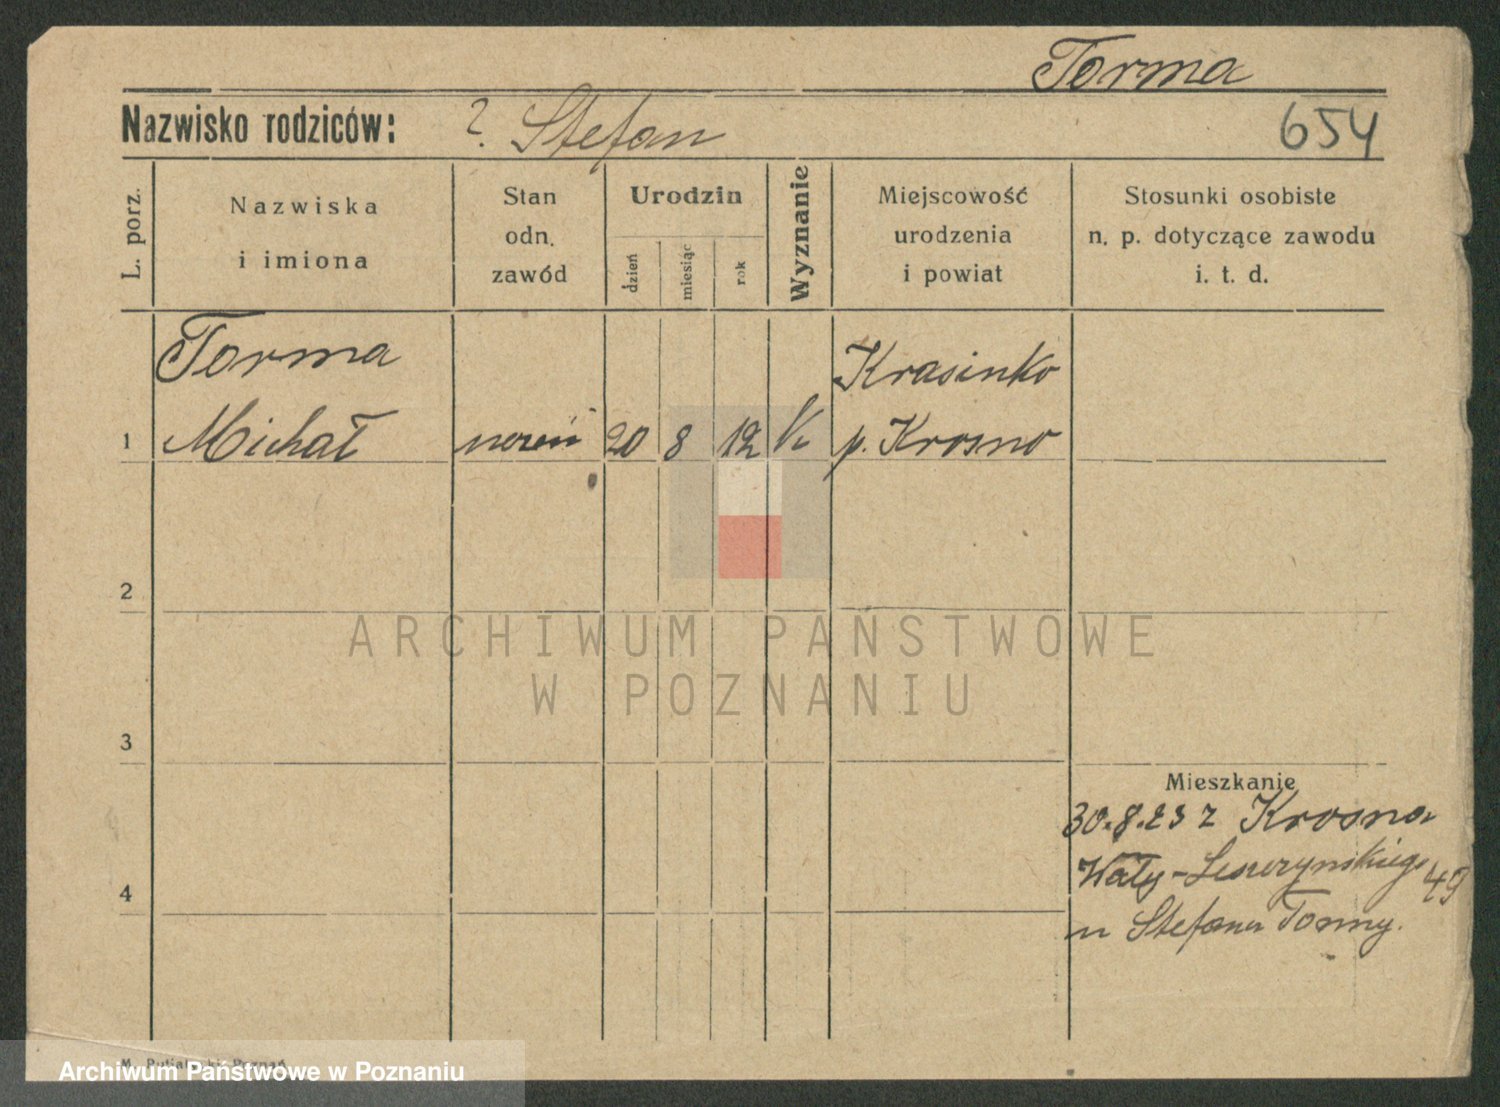 Torma
Nazwisko rodziców: ? Stefan 654
L. porz.
Nazwiska
i imiona
Stan
odn.
zawód
Urodzin
dzień
miesiąc
rok
Wyznanie
Miejscowość
urodzenia
i powiat
Stosunki osobiste
n. p. dotyczące zawodu
i. t. d.
Torma Krasinko
1 Michał uczeń 20 8 12 k p. Krosno
2
ARCHIWUM PAŃSTWOWE
W POZNANIU
3
Mieszkanie
30.8.23 z Krosna
4 Wały-Leszczyńskiego 49
u Stefana Tormy.
M. Poznań
Archiwum Państwowe w Poznaniu